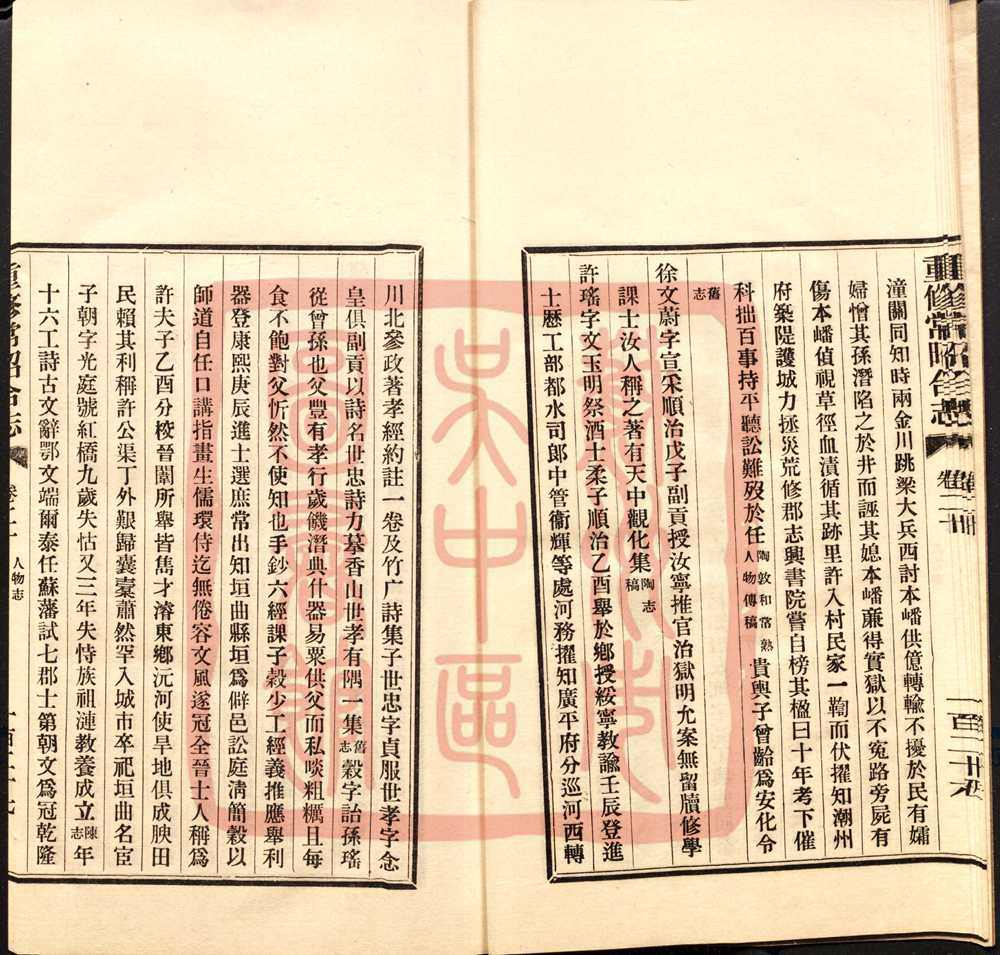 重修常昭合志
卷二十
一百二十九
潼關同知時兩金川跳梁大兵西討本嶓供億轉輸不擾於民有孀
婦憎其孫潛陷之於井而誣其媳本嶓亷得實獄以不寃路旁屍有
傷本嶓偵視草徑血漬循其跡里許入村民家一鞫而伏擢知潮州
府築隄護城力拯災荒修郡志興書院嘗自榜其楹曰十年考下催
科拙百事持平聽訟難歿於任陶敦和常熟人物傳稿貴輿子曾齡爲安化令
舊志
徐文蔚字宣采順治戊子副貢授汝寧推官治獄明允案無留牘修學
課士汝人稱之著有天中觀化集陶志稿
許瑤字文玉明祭酒士柔子順治乙酉舉於鄉授綏寧教諭壬辰登進
士歷工部都水司郎中管衞輝等處河務擢知廣平府分巡河西轉
川北叅政著孝經約註一卷及竹广詩集子世忠字貞服世孝字念
皇俱副貢以詩名世忠詩力摹香山世孝有隅一集舊志穀字詒孫瑤
從曾孫也父豐有孝行歲饑潛典什器易粟供父而私啖粗糲且每
食不飽對父忻然不使知也手鈔六經課子穀少工經義推應舉利
器登康熙庚辰進士選庶常出知垣曲縣垣爲僻邑訟庭淸簡穀以
師道自任口講指畫生儒環侍迄無倦容文風遂冠全晉士人稱爲
許夫子乙酉分校晉闈所舉皆雋才濬東鄉沅河使旱地俱成腴田
民賴其利稱許公渠丁外艱歸囊橐蕭然罕入城市卒祀垣曲名宦
子朝字光庭號紅橋九歲失怙又三年失恃族祖漣教養成立陳志年
十六工詩古文辭鄂文端爾泰任蘇藩試七郡士第朝文爲冠乾隆
重修常昭合志
人物志